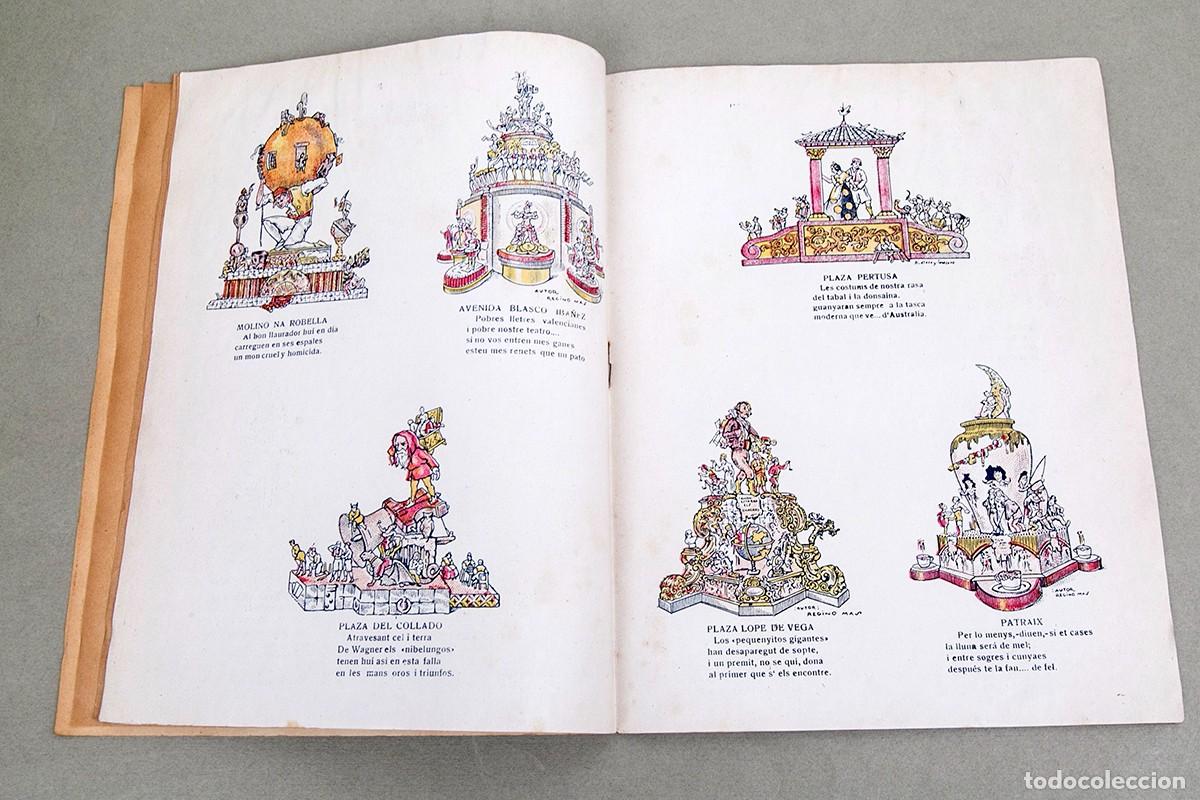 MOLINO NA ROBELLA
Al bon llaurador hui en dia
carreguen en ses espales
un mon cruel y homicida.
AUTOR
REGINO MAS
AVENIDA BLASCO IBAÑEZ
Pobres lletres valencianes
i pobre nostre teatro....
si no vos entren mes ganes
esteu mes renets que un pato
PLAZA DEL COLLADO
Atravesant cel i terra
De Wagner els «nibelungos»
tenen hui asi en esta falla
en les mans oros i triunfos.
PLAZA PERTUSA
Les costums de nostra rasa
del tabal i la donsaina,
guanyaran sempre a la tasca
moderna que ve... d'Australia.
AUTOR:
REGINO MAS
PLAZA LOPE DE VEGA
Los «pequenyitos gigantes»
han desaparegut de sopte,
i un premit, no se qui, dona
al primer que s' els encontre.
AUTOR
REGINO MAS
PATRAIX
Per lo menys,-diuen,-si et cases
la lluna será de mel;
i entre sogres i cunyaes
después te la fan.... de fel.
todocoleccion